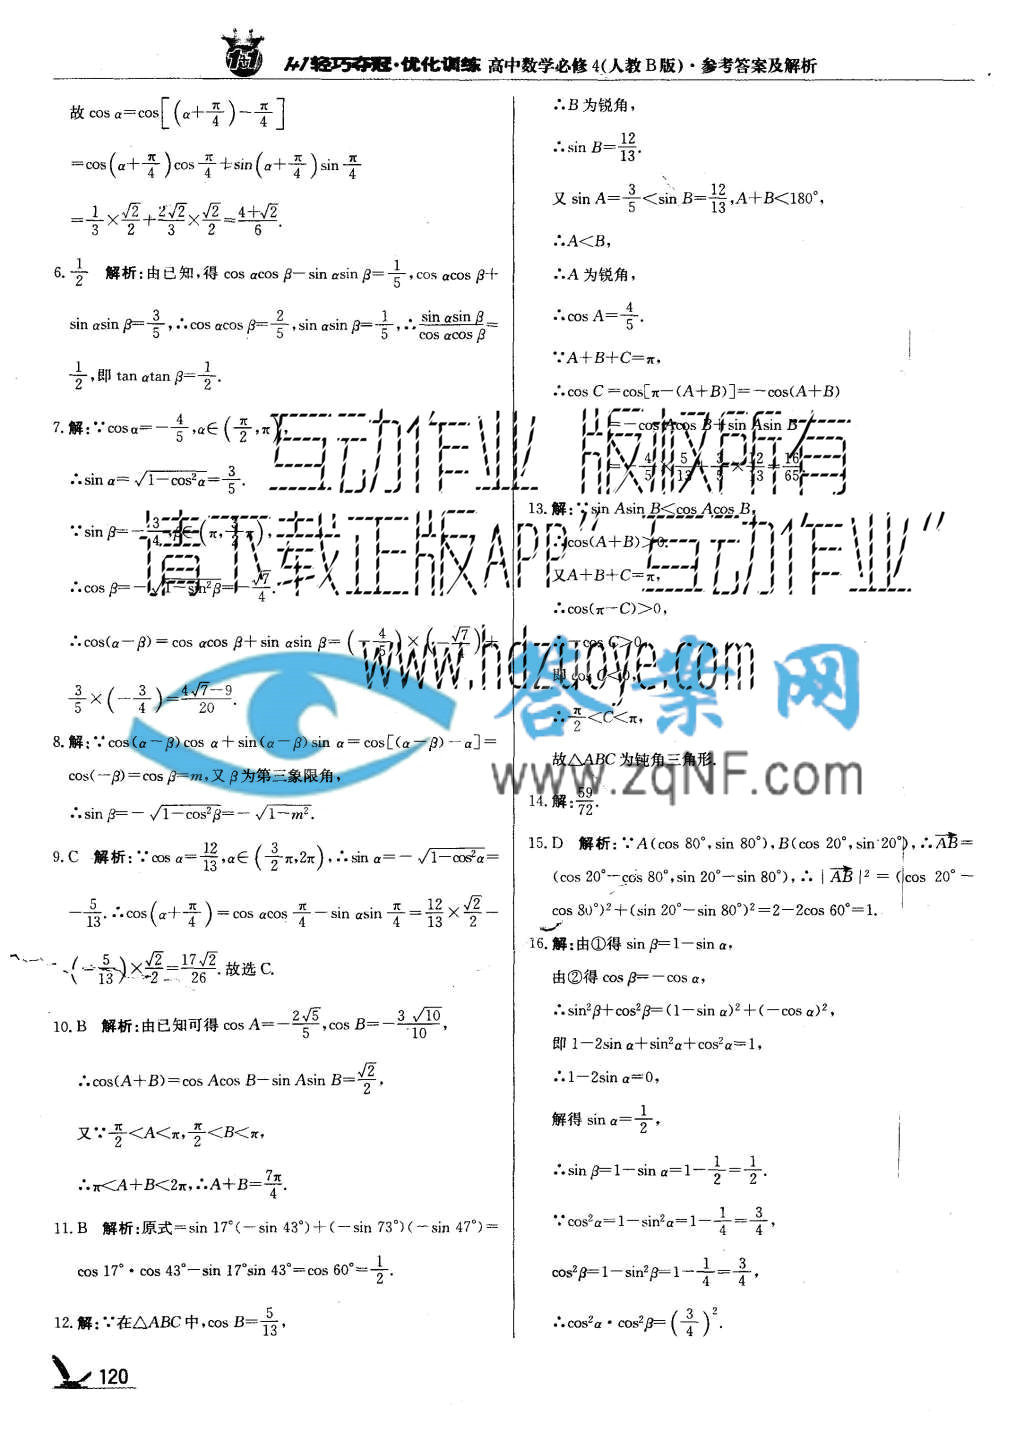 1+1轻巧夺冠·优化训练 高中数学必修4(人教B版)·参考答案及解析
故 cos α=cos[(α+π/4)-π/4]
=cos(α+π/4)cos π/4+sin(α+π/4)sin π/4
=1/3×√2/2+2√2/3×√2/2=(4+√2)/6.
6. 1/2 解析:由已知,得 cos αcos β-sin αsin β=1/5,cos αcos β+
sin αsin β=3/5,∴cos αcos β=2/5,sin αsin β=1/5,∴(sin αsin β)/(cos αcos β)=
1/2,即 tan αtan β=1/2.
7. 解:∵cos α=-4/5,α∈(π/2,π),
∴sin α=√(1-cos²α)=3/5.
∵sin β=-3/4,β∈(π,3/2π),
∴cos β=-√(1-sin²β)=-√7/4.
∴cos(α-β)=cos αcos β+sin αsin β=(-4/5)×(-√7/4)+
3/5×(-3/4)=(4√7-9)/20.
8. 解:∵cos(α-β)cos α+sin(α-β)sin α=cos[(α-β)-α]=
cos(-β)=cos β=m,又 β为第三象限角,
∴sin β=-√(1-cos²β)=-√(1-m²).
9. C 解析:∵cos α=12/13,α∈(3/2π,2π),∴sin α=-√(1-cos²α)=
-5/13.∴cos(α+π/4)=cos αcos π/4-sin αsin π/4=12/13×√2/2-
(-5/13)×√2/2=17√2/26.故选 C.
10. B 解析:由已知可得 cos A=-2√5/5,cos B=-3√10/10,
∴cos(A+B)=cos Acos B-sin Asin B=√2/2,
又∵π/2<A<π,π/2<B<π,
∴π<A+B<2π,∴A+B=7π/4.
11. B 解析:原式=sin 17°(-sin 43°)+(-sin 73°)(-sin 47°)=
cos 17°·cos 43°-sin 17°sin 43°=cos 60°=1/2.
12. 解:∵在△ABC中,cos B=5/13,
120
∴B为锐角,
∴sin B=12/13.
又 sin A=3/5<sin B=12/13,A+B<180°,
∴A<B,
∴A为锐角,
∴cos A=4/5.
∵A+B+C=π,
∴cos C=cos[π-(A+B)]=-cos(A+B)
=-cos Acos B+sin Asin B
=-4/5×5/13+3/5×12/13=16/65.
13. 解:∵sin Asin B<cos Acos B,
∴cos(A+B)>0.
又A+B+C=π,
∴cos(π-C)>0,
∴-cos C>0,
即 cos C<0,
∴π/2<C<π,
故△ABC为钝角三角形.
14. 解:59/72.
15. D 解析:∵A(cos 80°,sin 80°),B(cos 20°,sin 20°),∴AB=
(cos 20°-cos 80°,sin 20°-sin 80°),∴|AB|²=(cos 20°-
cos 80°)²+(sin 20°-sin 80°)²=2-2cos 60°=1.
16. 解:由①得 sin β=1-sin α,
由②得 cos β=-cos α,
∴sin²β+cos²β=(1-sin α)²+(-cos α)²,
即 1-2sin α+sin²α+cos²α=1,
∴1-2sin α=0,
解得 sin α=1/2,
∴sin β=1-sin α=1-1/2=1/2.
∵cos²α=1-sin²α=1-1/4=3/4,
cos²β=1-sin²β=1-1/4=3/4,
∴cos²α·cos²β=(3/4)².
互动作业 版权所有
请下载正版APP"互动作业"
www.hdzuoye.com
答案网
www.zqNF.com